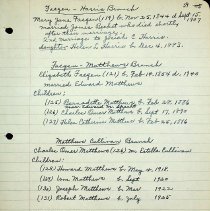 Faegen - Harris Branch
Mary Jane Faegen (119) b. Nov. 25, 1844 d. Sept. 15, 1907
married James who died shortly
after their marriage
2nd marriage to Josiah E. Harris
daughter Helen L. Harris b. Dec. 4, 1883.
Faegen - Matthews Branch
Elizabeth Faegen (121) b. Feb. 14, 1854 d. 1944
married Edward Matthews
Children:
(125) Bernadette Matthews b. Feb. 28, 1886
(126) Charles Omer Matthews b. Sept. 17, 1890
(127) Helen Catherine Matthews b. Feb. 25, 1896
Matthews Branch
Charles Omer Matthews (126) m. Estelle
Children:
(128) Howard Matthews b. May 4, 1918
(129) Matthews b. Sept. 1920
(130) Joseph Matthews b. Mar. 1922
(131) Robert Matthews b. July 1925